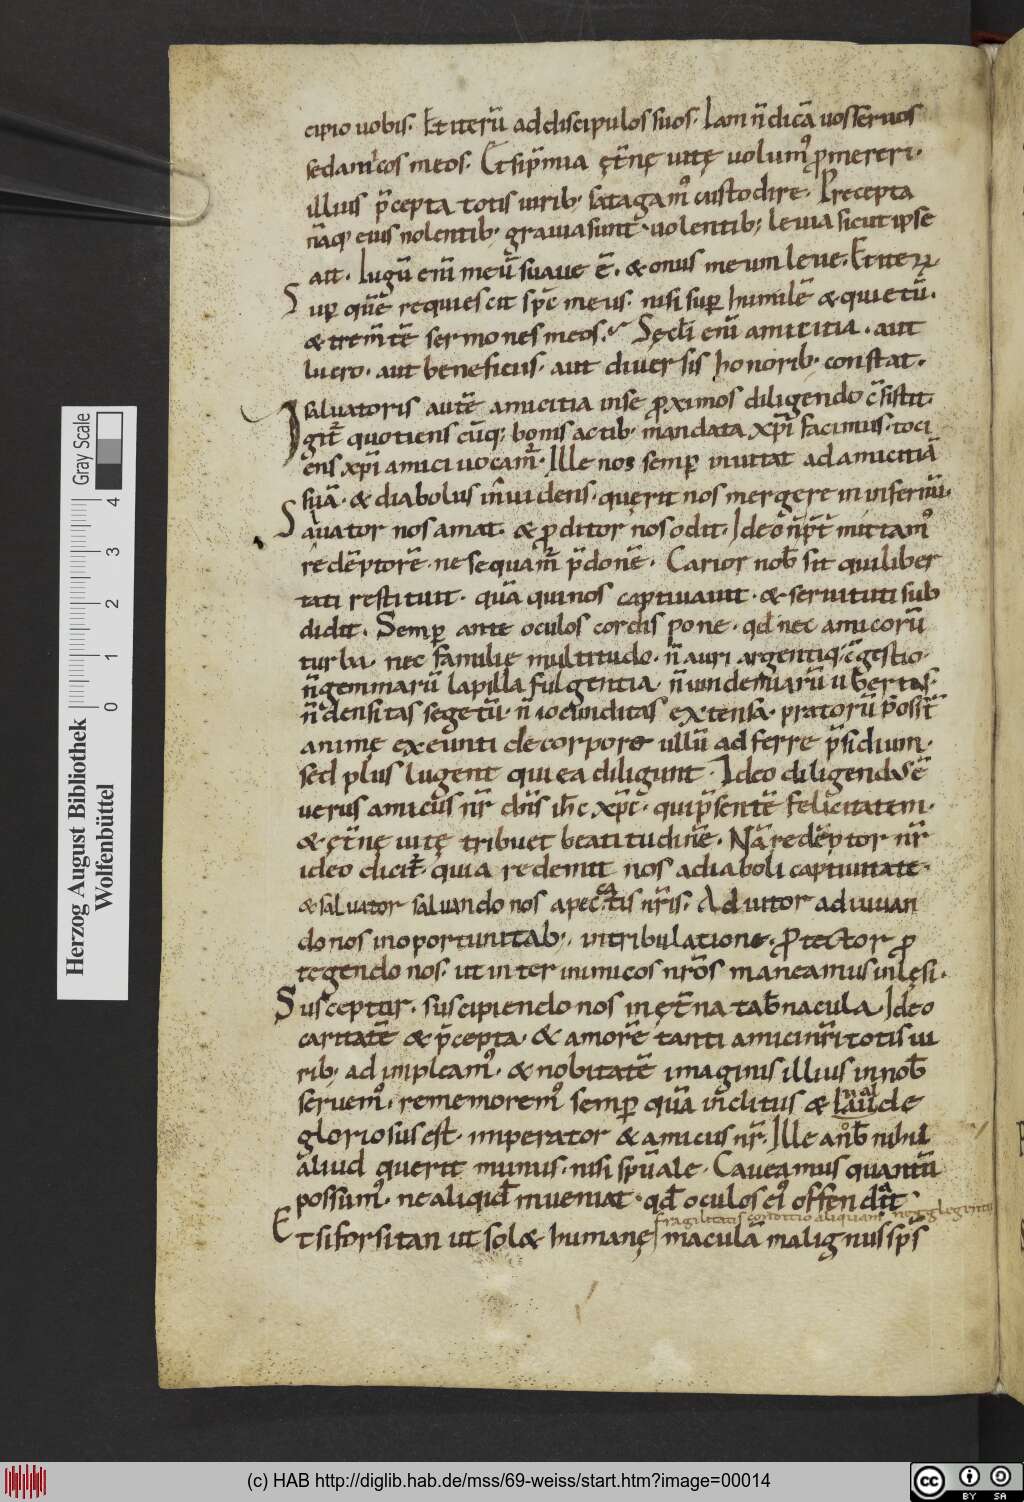 cipio uobis. Et iterū ad discipulos suos. Iam n̄ dicā uos seruos
sed amicos meos. Et si p̄mia ęt̄nę uitę uolum᷒ ꝓmereri.
illius p̄cepta totis uirib; satagam᷒ custodire. Precepta
nāq; eius nolentib; grauia sunt. uolentib; leuia sicut ipse
ait. Iugū enī meū suaue ē. & onus meum leue. Et iterū
Sup̱ quē requiescit sp̄c meus. nisi sup̱ humilē & quietū.
& trem̄tē sermones meos. Sęcl̄i enī amicitia. aut
lucro. aut beneficiis. aut diuersis honorib; constat.
saluatoris autē amicitia in se ꝓximos diligendo c̄sistit.
Igit̄ quotiens cūq; bonis actib; mandata xp̄i facimus. toci
ens xp̄i amici uocam̄. Ille nos semp̱ inuitat ad amicitiā
suā. & diabolus inuidens. querit nos mergere in infernū.
Saluator nos amat. & ꝓditor nos odit. Ideo n̄ p̄t mittam᷒
redēptorē. ne sequam̄ p̄donē. Carior nob̄ sit qui liber
tati restituit. quā qui nos captiuauit. & seruituti sub
didit. Semp̱ ante oculos cordis pone. qd̄ nec amicorū
turba. nec familię multitudo. n̄ auri argentiq; c̄gestio.
n̄ gemmarū lapilla fulgentia. n̄ uindemiarū ub̄ertas.
n̄ densitas segetū. n̄ iocunditas extensa pratorū poss̄t
animę exeunti de corpore ullū adferre p̄sidium.
sed plus lugent qui ea diligunt. Ideo diligend᷒ ē
uerus amicus nr̄ dn̄s ih̄c xp̄c. qui p̄sentē felicitatem.
& ęt̄nę uitę tribuet beatitudinē. Nā redēptor nr̄
ideo dicit̄. quia redemit nos a diaboli captiuitate.
& saluator saluando nos a peccatis nr̄is. Adiutor adiuuan
do nos in oportunitab;. in tribulatione. Protector ꝓ
tegendo nos. ut inter inimicos nr̄os maneamus inlęsi.
Susceptor. suscipiendo nos in ęt̄na tab̄nacula. Ideo
caritatē & p̄cepta. & amorē tanti amici nr̄i totis ui
rib; adimpleam᷒. & nobitatē imaginis illius in nob̄
seruem᷒. rememorem᷒ semp̱ quā inclitus & laude
gloriosus est. imperator & amicus nr̄. Ille a nob̄ nihil
aliud querit munus. nisi sp̄uale. Caueamus quantū
possum᷒. ne aliqid̄ inueniat. qd̄ oculos ei᷒ offendat
fragilitatis conditio aliquam neglegentie
Et si forsitan ut sol& humanę maculā malignus sp̄s
Herzog August Bibliothek
Wolfenbüttel
0 1 2 3 4
Gray Scale
(c) HAB http://diglib.hab.de/mss/69-weiss/start.htm?image=00014
cc BY SA